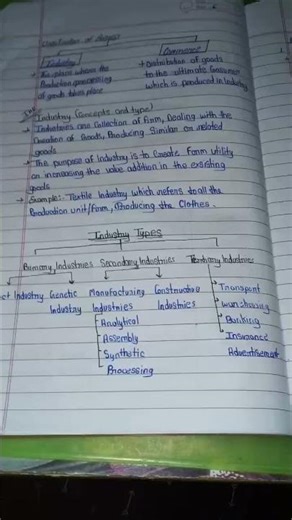 Classification of
Industry
Commerce
→ The place where the
Production processing
of goods takes place
→ Distribution of goods
to the ultimate Consumer
which is produced in Industry
Industry (Concepts and type)
→ Industries are Collection of Firm, Dealing with the
Creation of Goods, Producing Similar or related
goods
→ The purpose of Industry is to Create Form utility
an increasing the value addition in the existing
goods
→ Example:- Textile Industry which refers to all the
Production unit/Firm, Producing the Clothes.
Industry Types
Primary Industries Secondary Industries Tertiary Industries
ct Industry Genetic Industry
Manufacturing Industries
Construction Industries
Analytical
Assembly
Synthetic
Processing
Transport
warehousing
Banking
Insurance
Advertisement